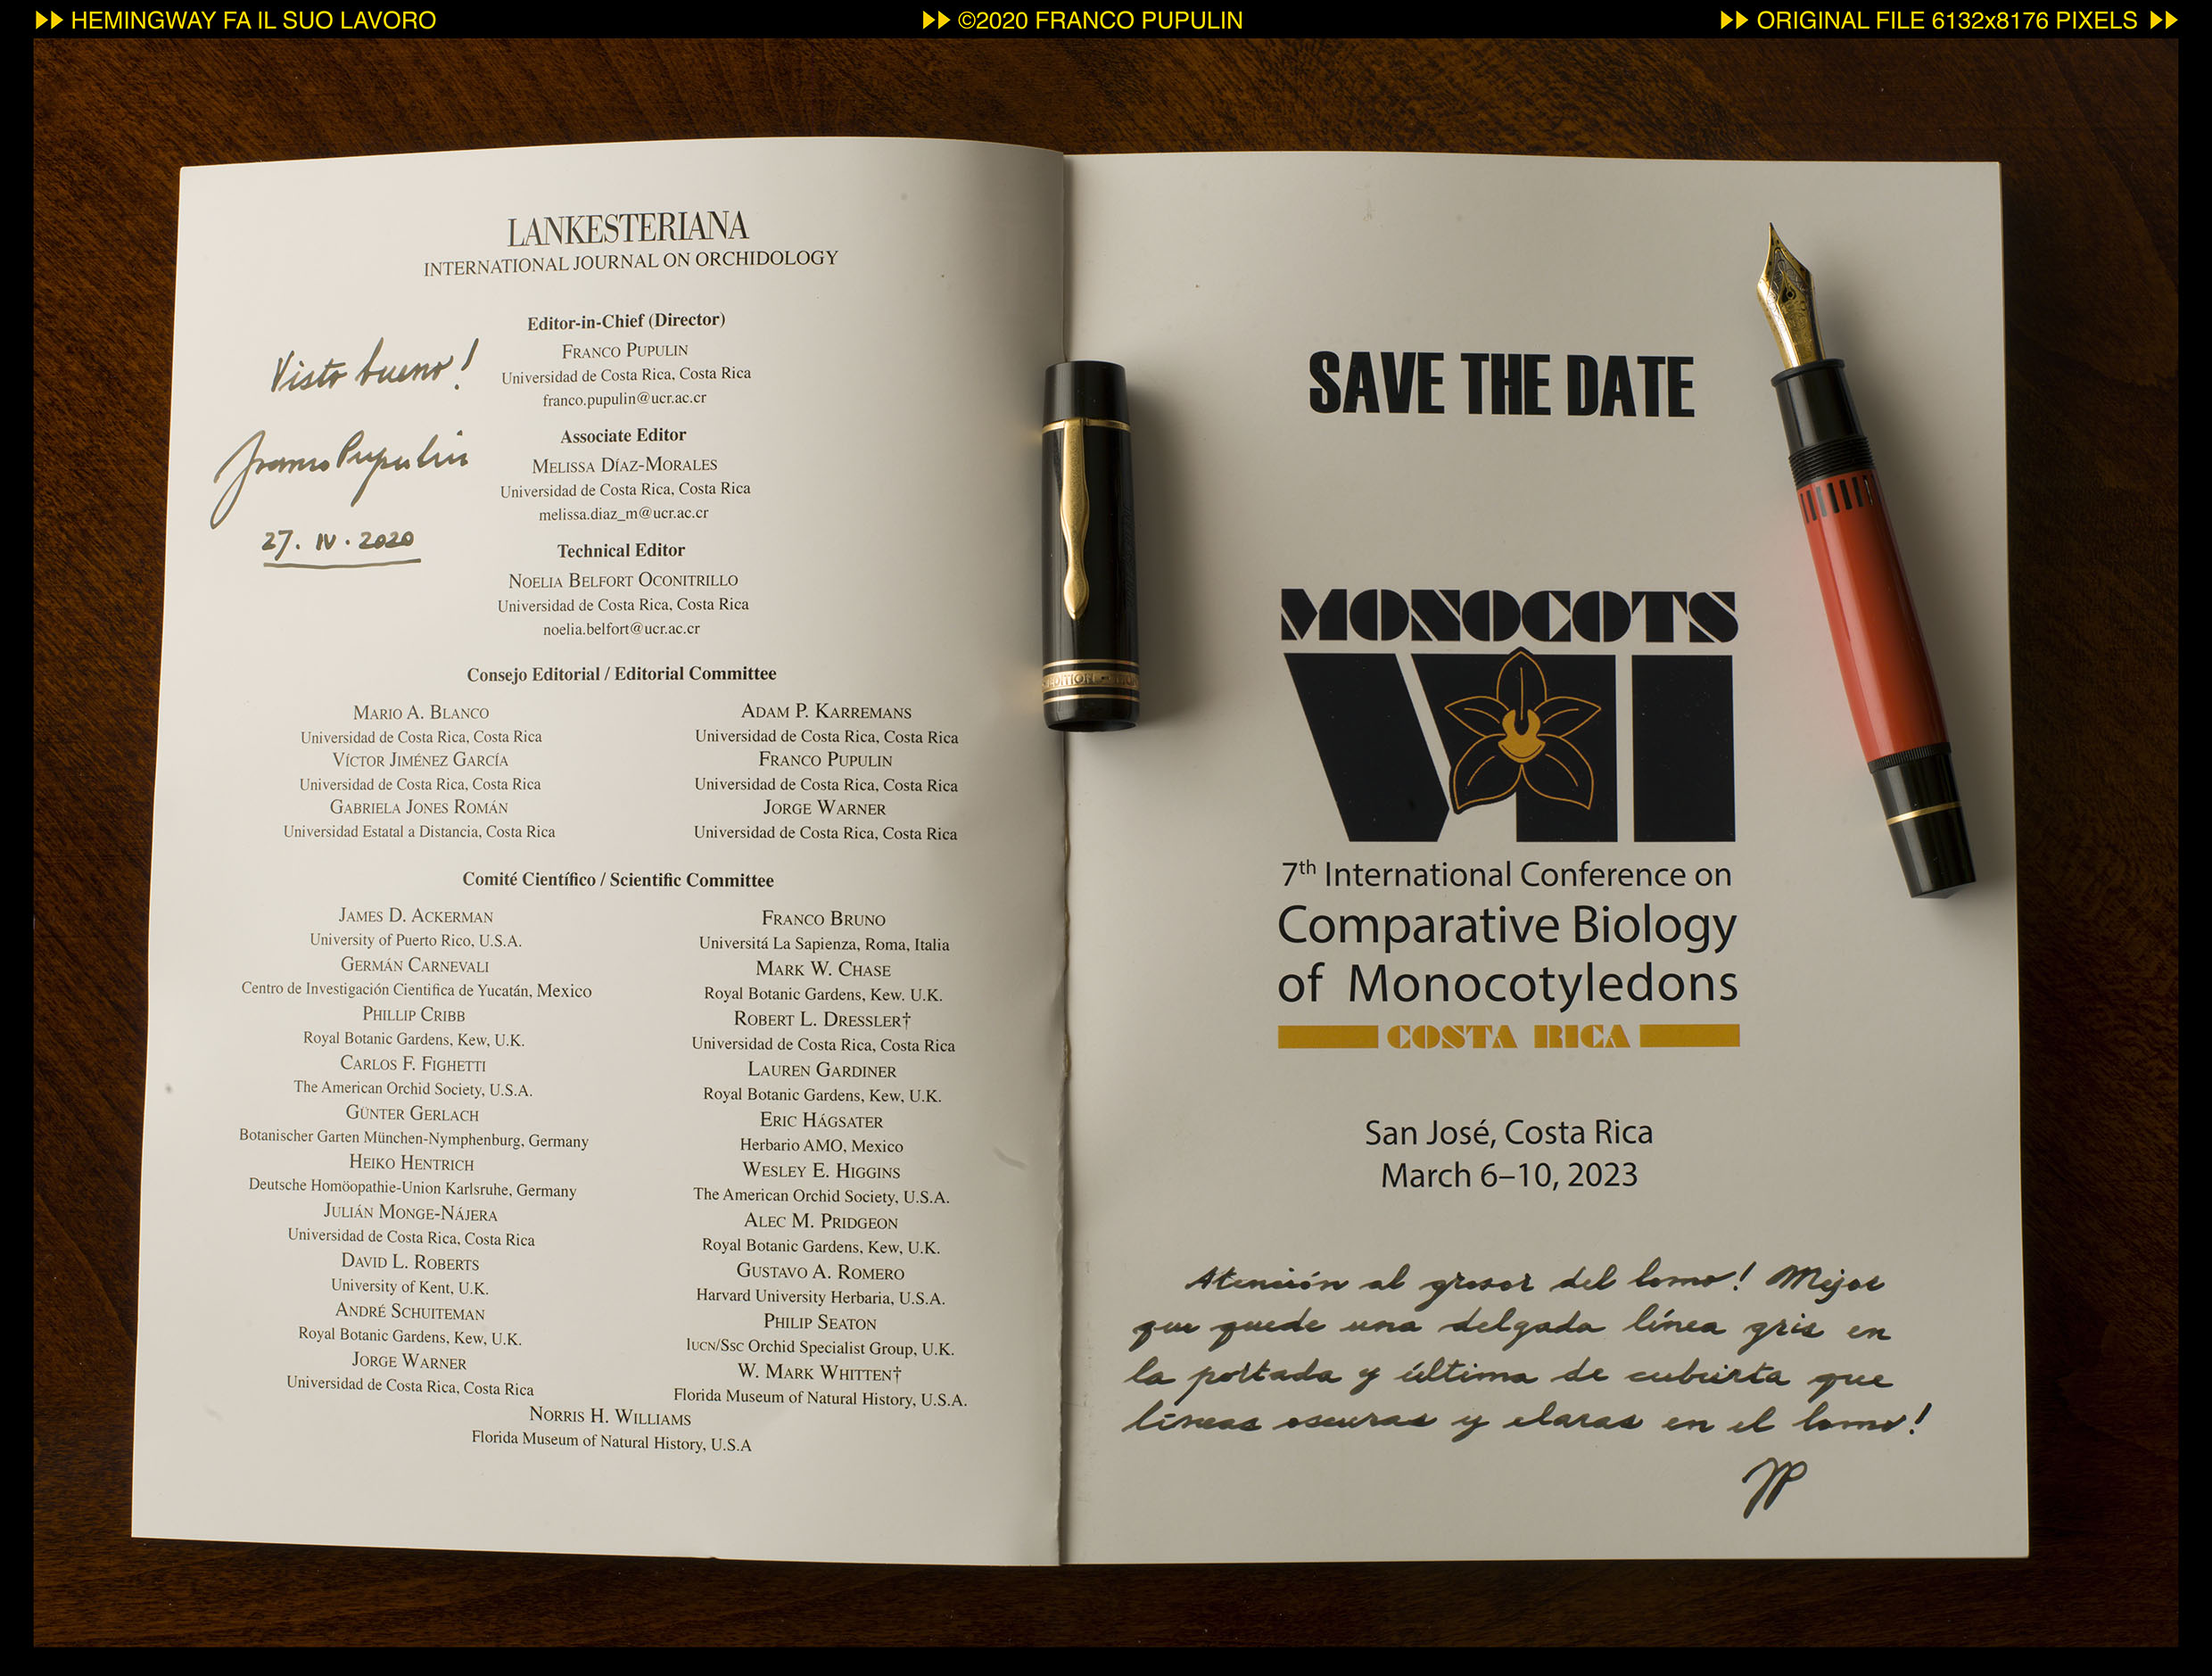 HEMINGWAY FA IL SUO LAVORO
©2020 FRANCO PUPULIN
ORIGINAL FILE 6132x8176 PIXELS
LANKESTERIANA
INTERNATIONAL JOURNAL ON ORCHIDOLOGY
Visto bueno!
Franco Pupulin
27. IV. 2020
Editor-in-Chief (Director)
FRANCO PUPULIN
Universidad de Costa Rica, Costa Rica
franco.pupulin@ucr.ac.cr
Associate Editor
MELISSA DÍAZ-MORALES
Universidad de Costa Rica, Costa Rica
melissa.diaz_m@ucr.ac.cr
Technical Editor
NOELIA BELFORT OCONITRILLO
Universidad de Costa Rica, Costa Rica
noelia.belfort@ucr.ac.cr
Consejo Editorial / Editorial Committee
MARIO A. BLANCO
Universidad de Costa Rica, Costa Rica
VÍCTOR JIMÉNEZ GARCÍA
Universidad de Costa Rica, Costa Rica
GABRIELA JONES ROMÁN
Universidad Estatal a Distancia, Costa Rica
ADAM P. KARREMANS
Universidad de Costa Rica, Costa Rica
FRANCO PUPULIN
Universidad de Costa Rica, Costa Rica
JORGE WARNER
Universidad de Costa Rica, Costa Rica
Comité Científico / Scientific Committee
JAMES D. ACKERMAN
University of Puerto Rico, U.S.A.
GERMÁN CARNEVALI
Centro de Investigación Cientifica de Yucatán, Mexico
PHILLIP CRIBB
Royal Botanic Gardens, Kew, U.K.
CARLOS F. FIGHETTI
The American Orchid Society, U.S.A.
GÜNTER GERLACH
Botanischer Garten München-Nymphenburg, Germany
HEIKO HENTRICH
Deutsche Homöopathie-Union Karlsruhe, Germany
JULIÁN MONGE-NÁJERA
Universidad de Costa Rica, Costa Rica
DAVID L. ROBERTS
University of Kent, U.K.
ANDRÉ SCHUITEMAN
Royal Botanic Gardens, Kew, U.K.
JORGE WARNER
Universidad de Costa Rica, Costa Rica
FRANCO BRUNO
Universitá La Sapienza, Roma, Italia
MARK W. CHASE
Royal Botanic Gardens, Kew. U.K.
ROBERT L. DRESSLER†
Universidad de Costa Rica, Costa Rica
LAUREN GARDINER
Royal Botanic Gardens, Kew, U.K.
ERIC HÁGSATER
Herbario AMO, Mexico
WESLEY E. HIGGINS
The American Orchid Society, U.S.A.
ALEC M. PRIDGEON
Royal Botanic Gardens, Kew, U.K.
GUSTAVO A. ROMERO
Harvard University Herbaria, U.S.A.
PHILIP SEATON
IUCN/SSC Orchid Specialist Group, U.K.
W. MARK WHITTEN†
Florida Museum of Natural History, U.S.A.
NORRIS H. WILLIAMS
Florida Museum of Natural History, U.S.A
EDITION
SAVE THE DATE
MONOCOTS
VII
7th International Conference on
Comparative Biology
of Monocotyledons
COSTA RICA
San José, Costa Rica
March 6–10, 2023
Atención al grosor del lomo! Mejor
que quede una delgada línea gris en
la portada y última de cubierta que
líneas oscuras y claras en el lomo!
FP